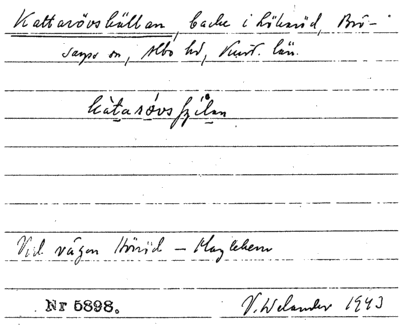 Kattarövskällan, backe i Lökaröd, Brö-
sarps sn, Albo hd, Krist. län.
Vid vägen Hörröd – Maglehem
Nr 5898. V. Welander 1943